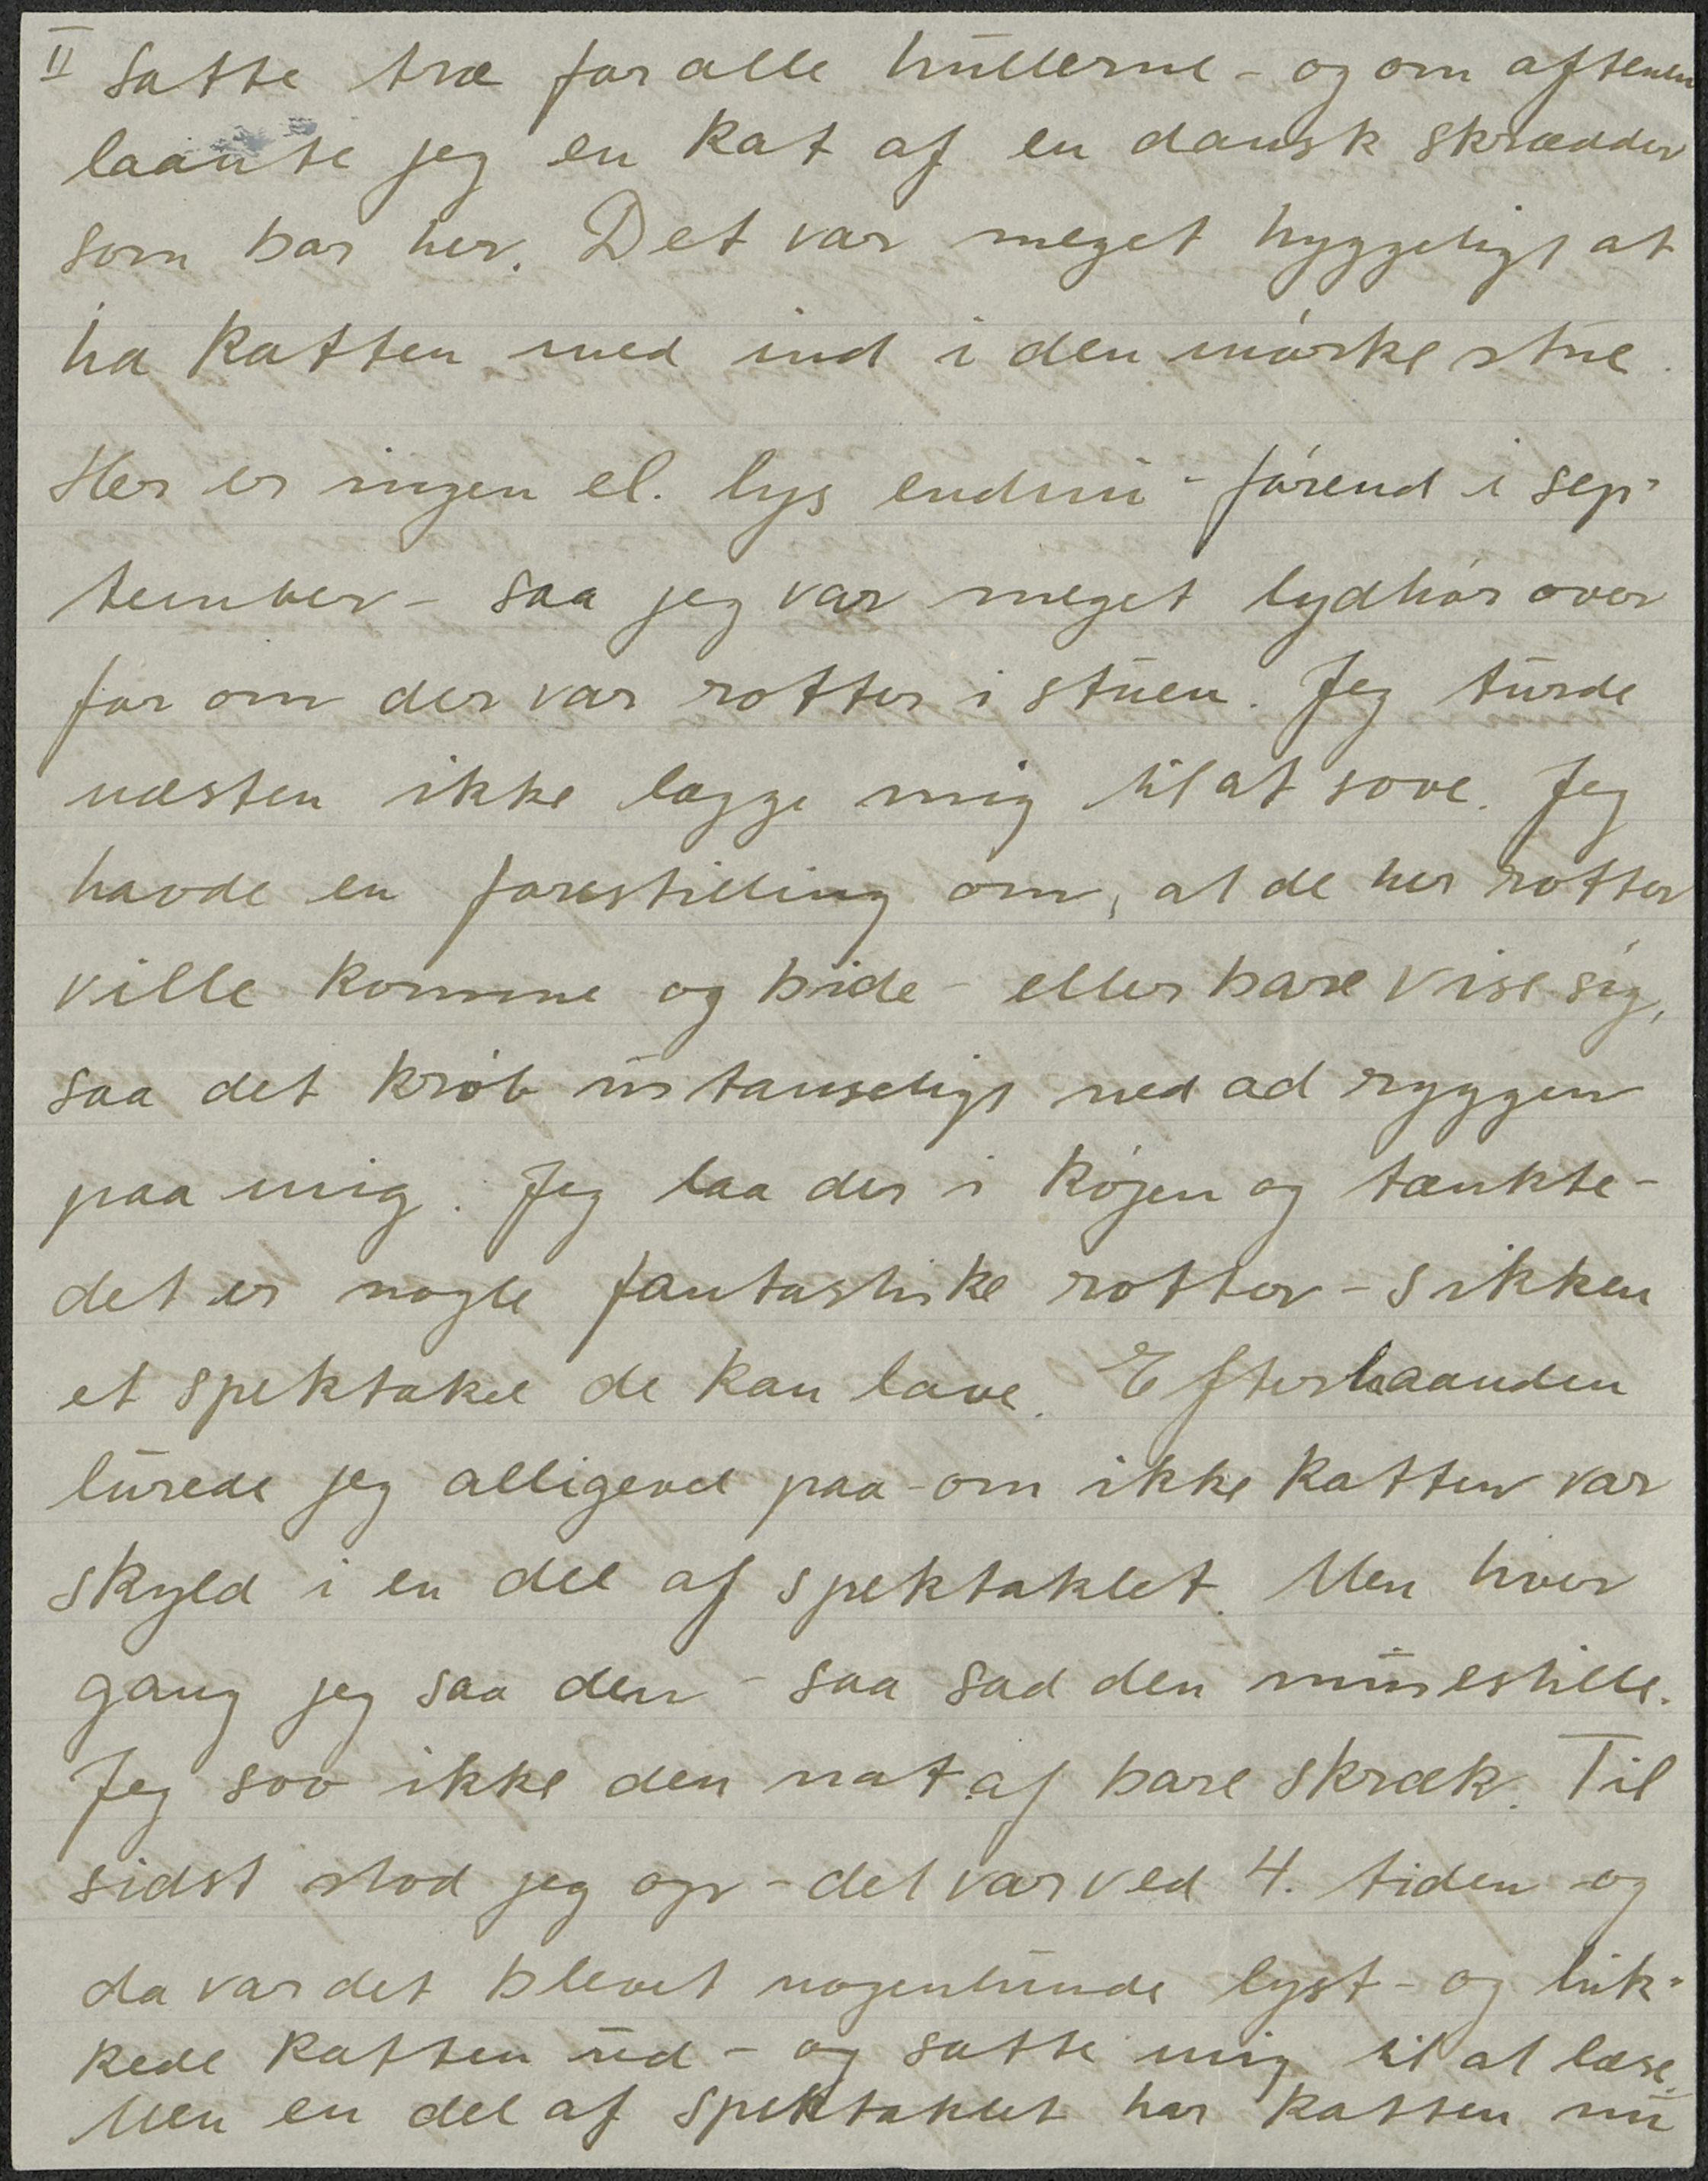 II Satte træ for alle hullerne - og om aftenen
laante jeg en kat af en dansk skrædder
som bor her. Det var meget hyggeligt at
ha katten med ind i den mørke stue.
Her er ingen el. lys endnu - førend i sep-
tember - saa jeg var meget lydhør over
for om der var rotter i stuen. Jeg turde
næsten ikke lægge mig til at sove. Jeg
havde en forestilling om, at de her rotter
ville komme og bide - eller bare vise sig,
saa det krøb ustanseligt ned ad ryggen
paa mig. Jeg laa der i køjen og tænkte -
det er nogle fantastiske rotter - sikken
et spektakel de kan lave. Efterhaanden
lurede jeg alligevel paa - om ikke katten var
skyld i en del af spektaklet. Men hver
gang jeg saa den - saa sad den musestille.
Jeg sov ikke den nat af bare skræk. Til
sidst stod jeg op - det var ved 4. tiden - og
da var det blevet nogenlunde lyst - og luk-
kede katten ud - og satte mig til at læse.
Men en del af spektaklet har katten nu